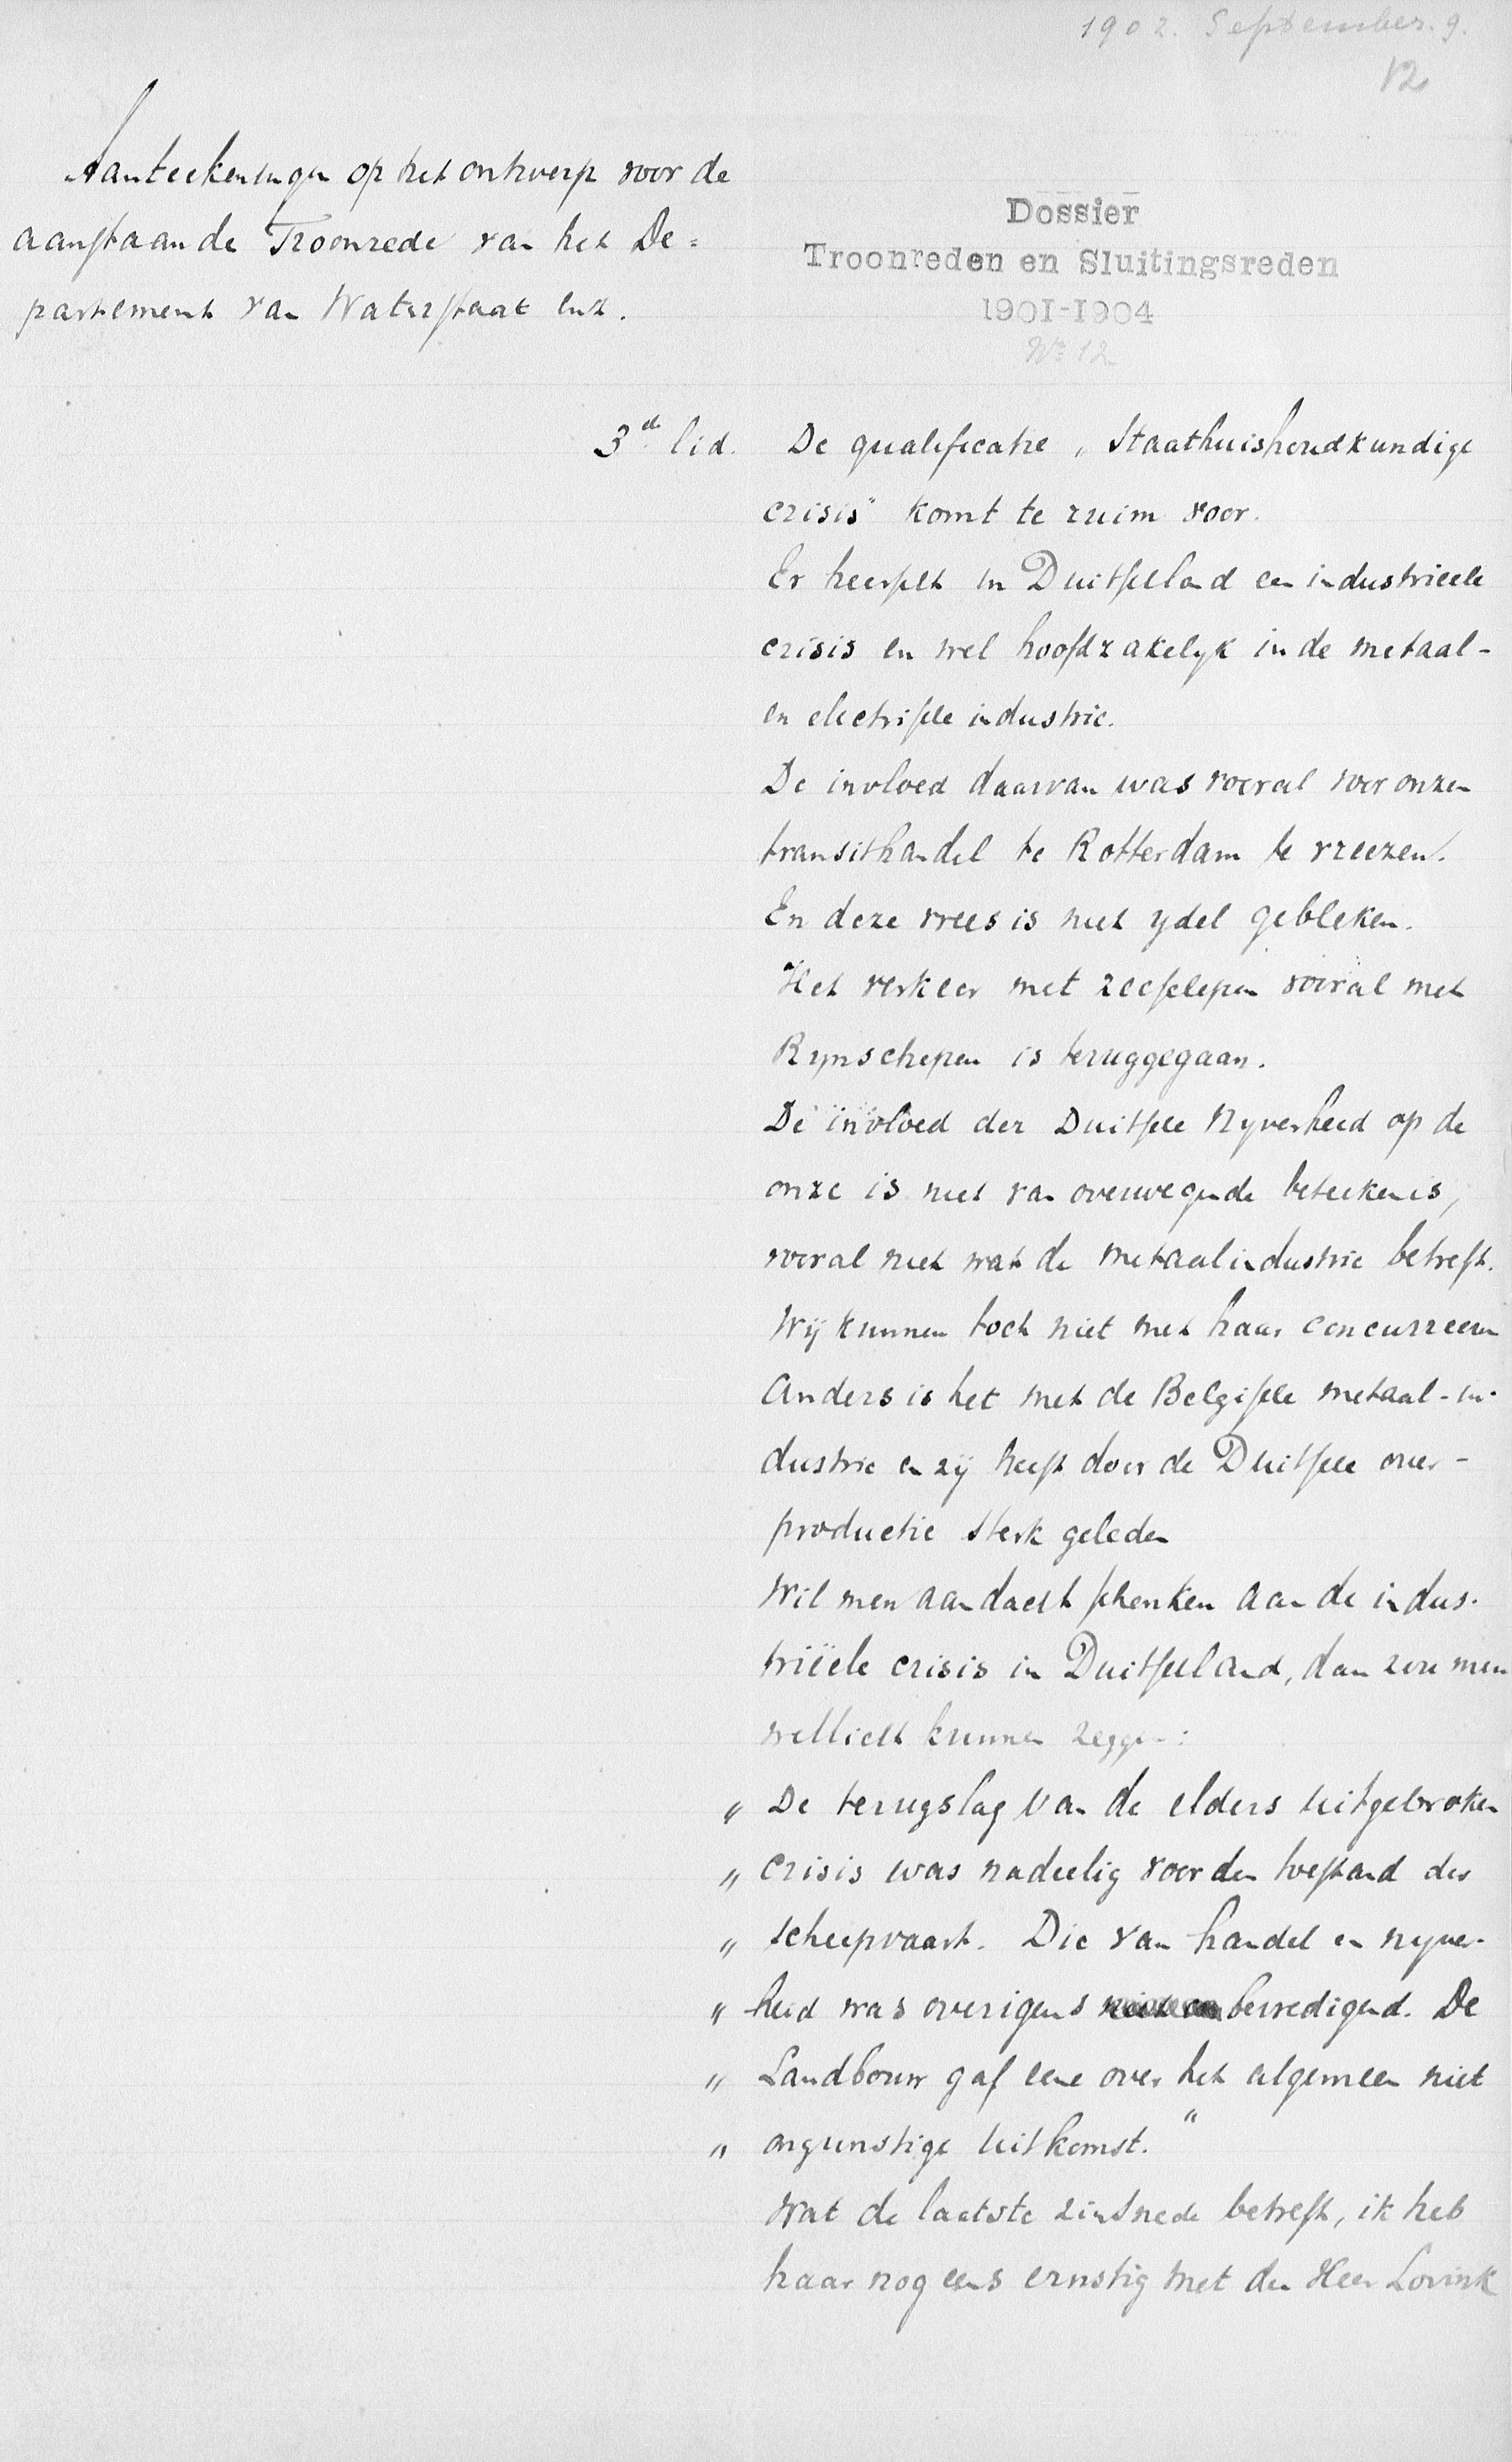 1902. September. 9.
12
Aanteekeningen op het ontwerp voor de
aanstaande Troonrede van het De=
partement van Waterstaat enz.
Dossier
Troonreden en Sluitingsreden
1901-1904
No 12
3de lid. De qualificatie „Staathuishoudkundige
crisis" komt te ruim voor.
Er heerscht in Duitschland een industrieele
crisis en wel hoofdzakelyk in de metaal-
en electrische industrie.
De invloed daarvan was vooral voor onzen
transithandel te Rotterdam te vreezen.
En deze vrees is niet ydel gebleken.
Het verkeer met zeeschepen vooral met
Rynschepen is teruggegaan.
De invloed der Duitsche Nyverheid op de
onze is niet van overwegende beteekenis,
vooral niet wat de metaalindustrie betreft.
Wij kunnen toch niet met haar concurreeren
Anders is het met de Belgische metaal-in-
dustrie en zij heeft door de Duitsche over-
productie sterk geleden
Wil men aandacht schenken aan de indus-
triëele crisis in Duitschland, dan zou men
wellicht kunnen zeggen:
„ De terugslag van de elders uitgebroken
„ crisis was nadeelig voor den toestand der
„ scheepvaart. Die van handel en nyver-
„ heid was overigens bevredigend. De
„ Landbouw gaf eene over het algemeen niet
„ ongunstige uitkomst."
Wat de laatste zinsnede betreft, ik heb
haar nog eens ernstig met den Heer Lovink